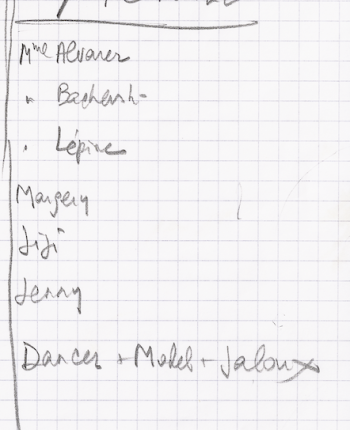 Mme Alvarez
"
" Lépine
Margery
Jiji
Jenny
Dancer + Model + Jaloux